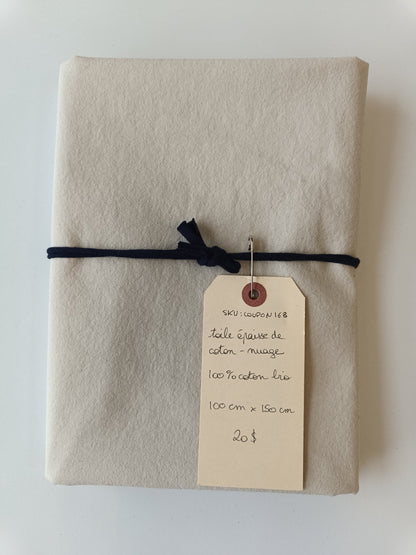 SKU: COUPON168
toile épaisse de
coton - nuage
100% coton bio
100 cm x 150 cm
20$